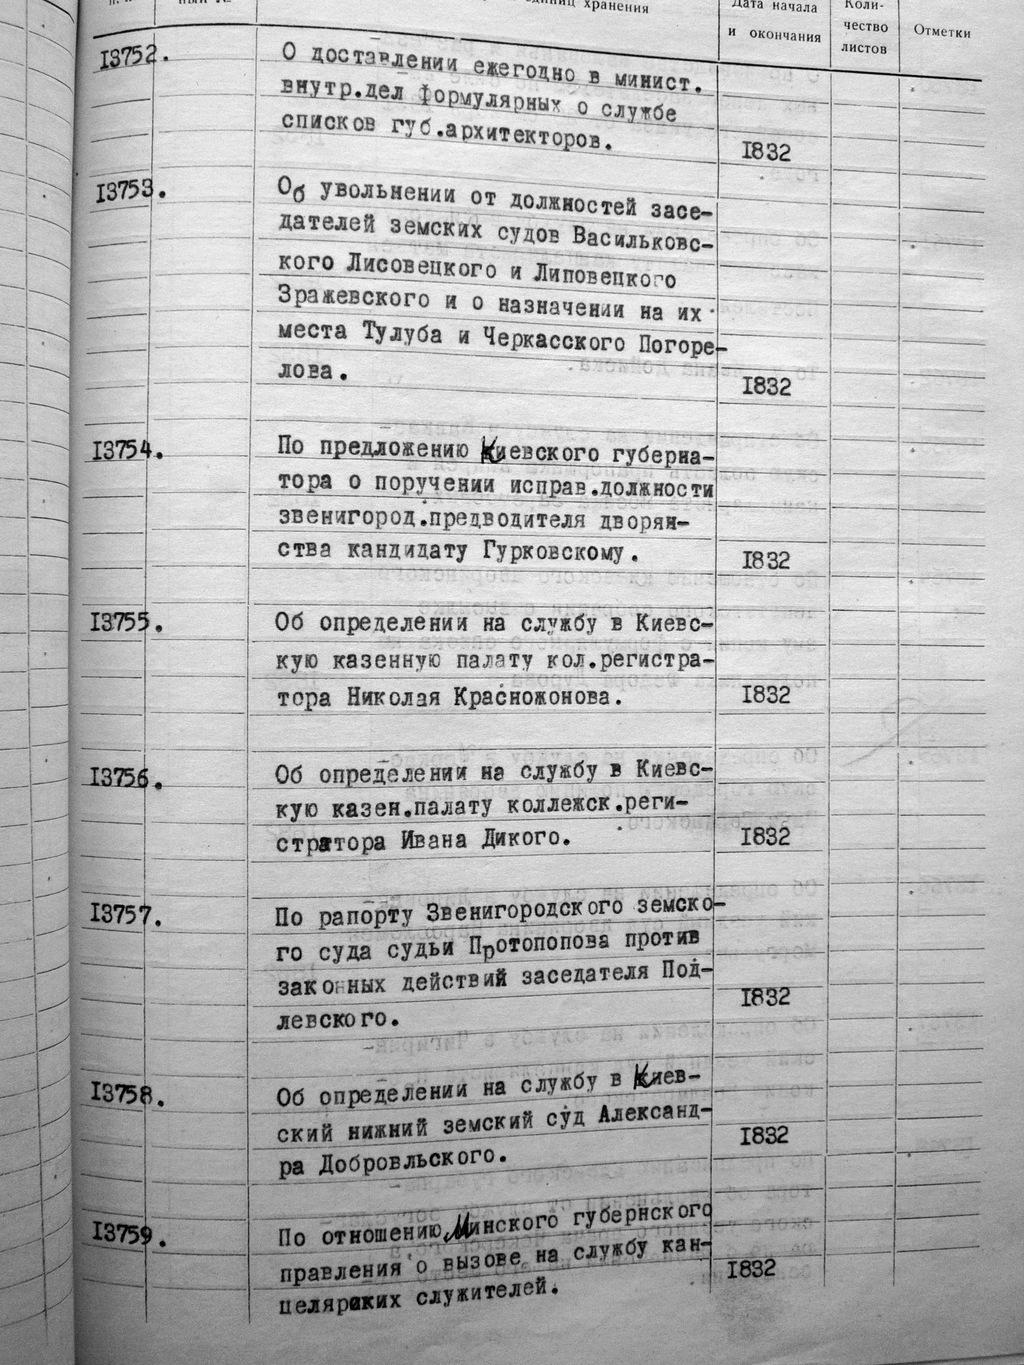 единиц хранения
Дата начала
и окончания
Коли-
чество
листов
Отметки
13752.
О доставлении ежегодно в минист.
внутр.дел формулярных о службе
списков губ.архитекторов.
1832
13753.
Об увольнении от должностей засе-
дателей земских судов Васильковс-
кого Лисовецкого и Липовецкого
Зражевского и о назначении на их
места Тулуба и Черкасского Погоре-
лова.
1832
13754.
По предложению Киевского губерна-
тора о поручении исправ.должности
звенигород.предводителя дворян-
ства кандидату Гурковскому.
1832
13755.
Об определении на службу в Киевс-
кую казенную палату кол.регистра-
тора Николая Красножонова.
1832
13756.
Об определении на службу в Киевс-
кую казен.палату коллежск.реги-
стратора Ивана Дикого.
1832
13757.
По рапорту Звенигородского земско-
го суда судьи Протопопова против
законных действий заседателя Под-
левского.
1832
13758.
Об определении на службу в Киев-
ский нижний земский суд Александ-
ра Добровльского.
1832
13759.
По отношению Минского губернского
правления о вызове на службу кан-
целярских служителей.
1832